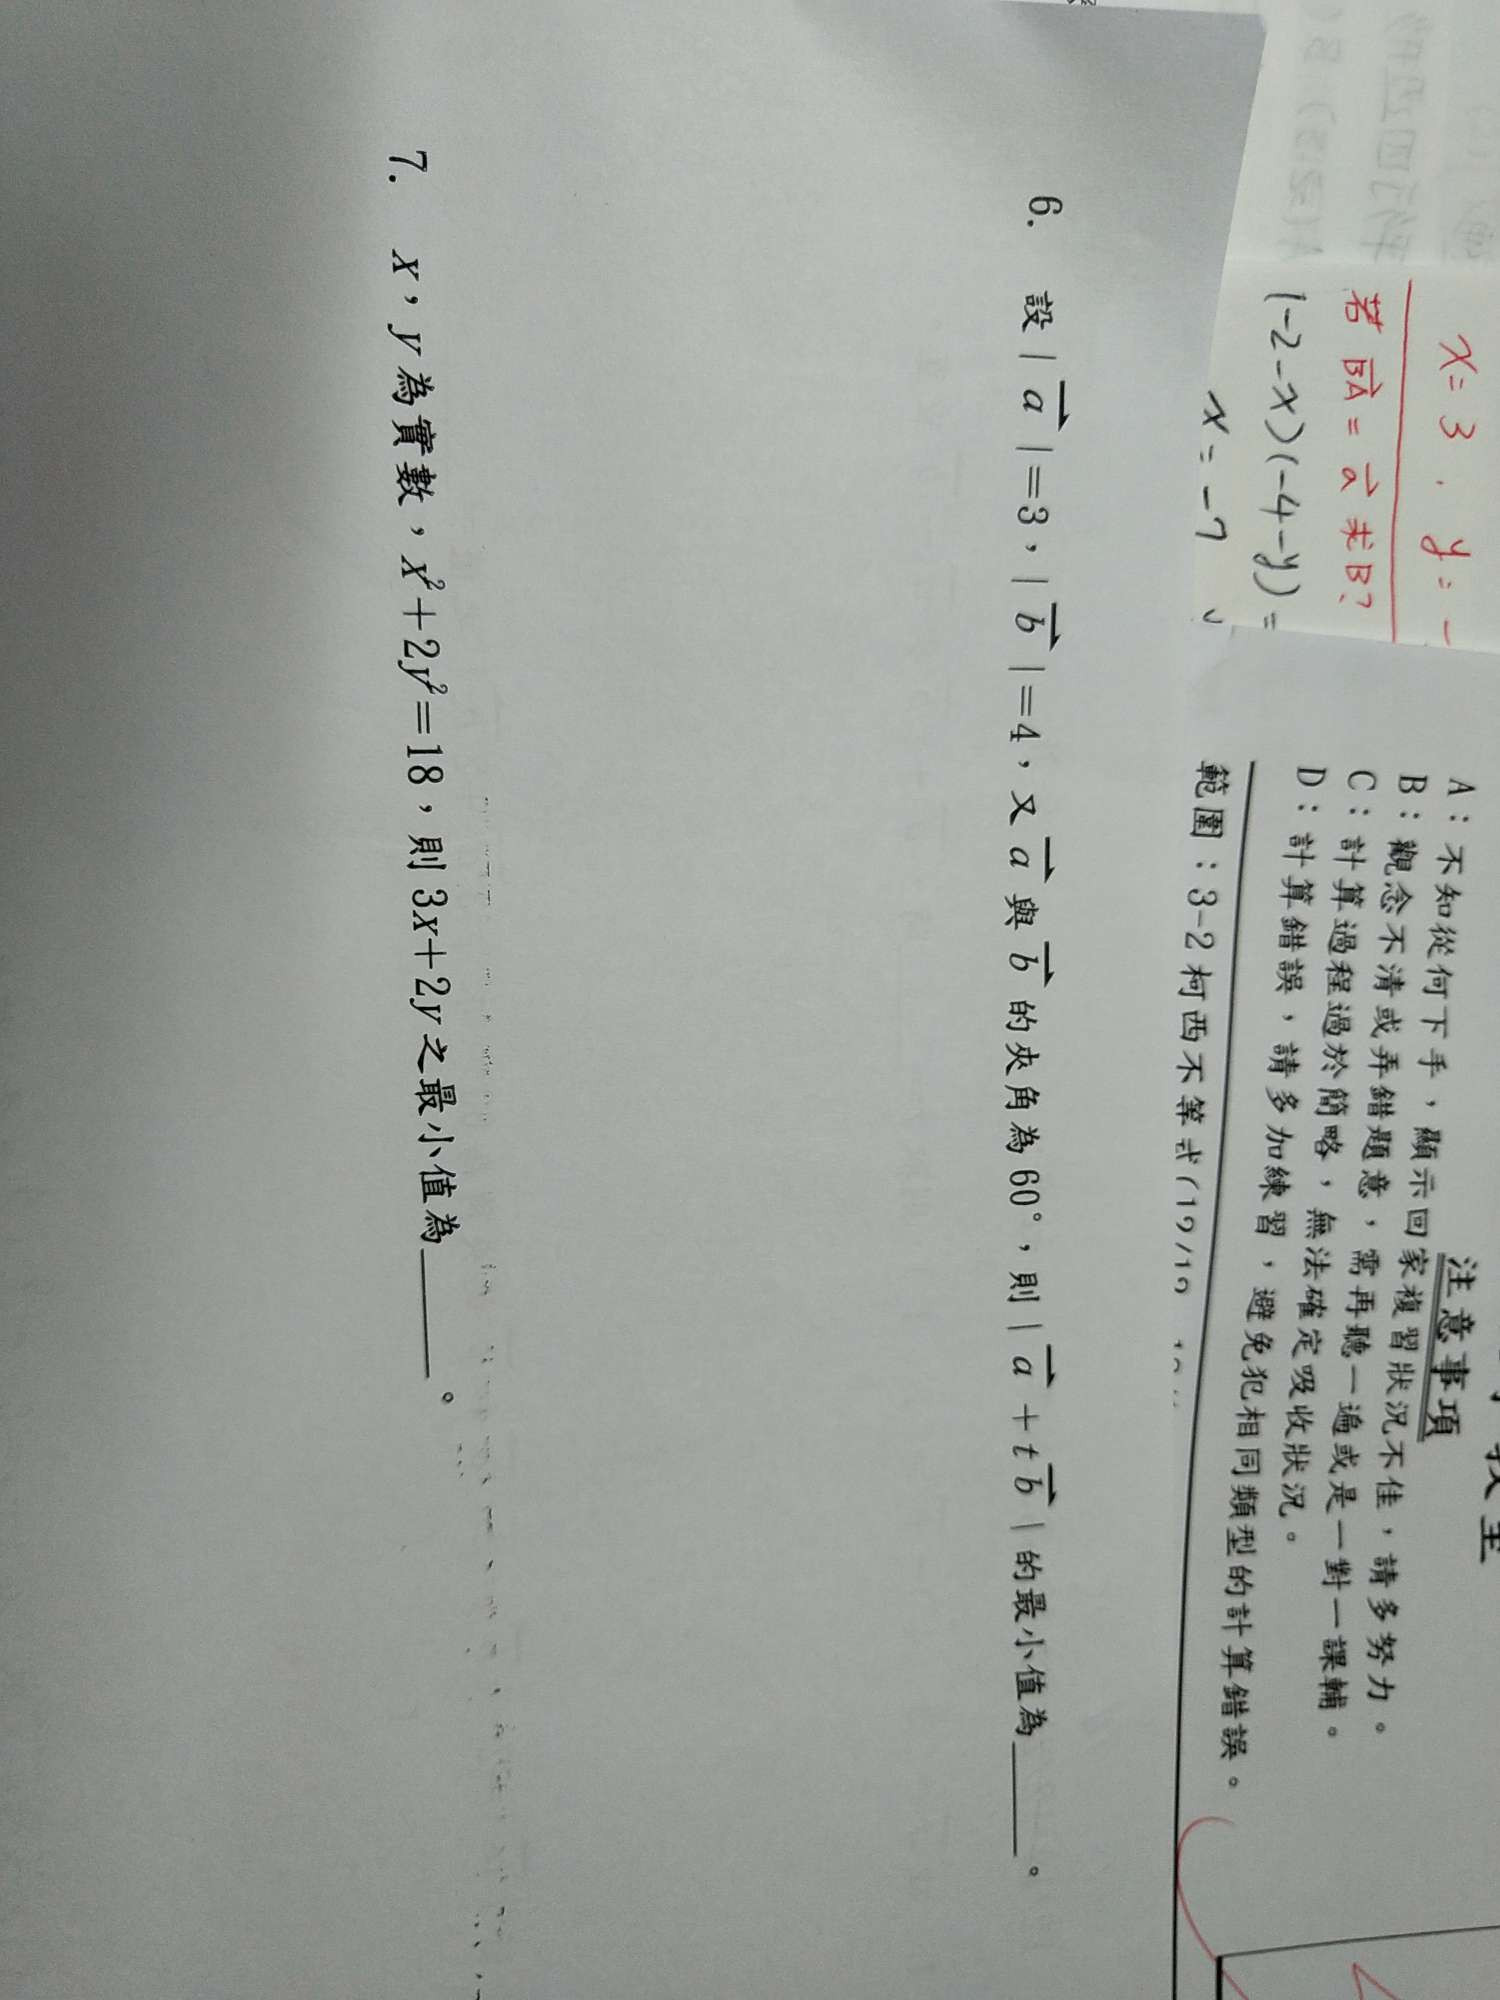 x=3. y=-
若 BA = a 求B?
(-2-x)(-4-y)=
x=-7
注意事項
A：不知從何下手，顯示回家複習狀況不佳，請多努力。
B：觀念不清或弄錯題意，需再聽一遍或是一對一課輔。
C：計算過程過於簡略，無法確定吸收狀況。
D：計算錯誤，請多加練習，避免犯相同類型的計算錯誤。
範圍：3-2柯西不等式(12/12
6. 設|a⃗|=3，|b⃗|=4，又a⃗與b⃗的夾角為60°，則|a⃗+tb⃗|的最小值為______。
7. x，y為實數，x²+2y²=18，則3x+2y之最小值為______。